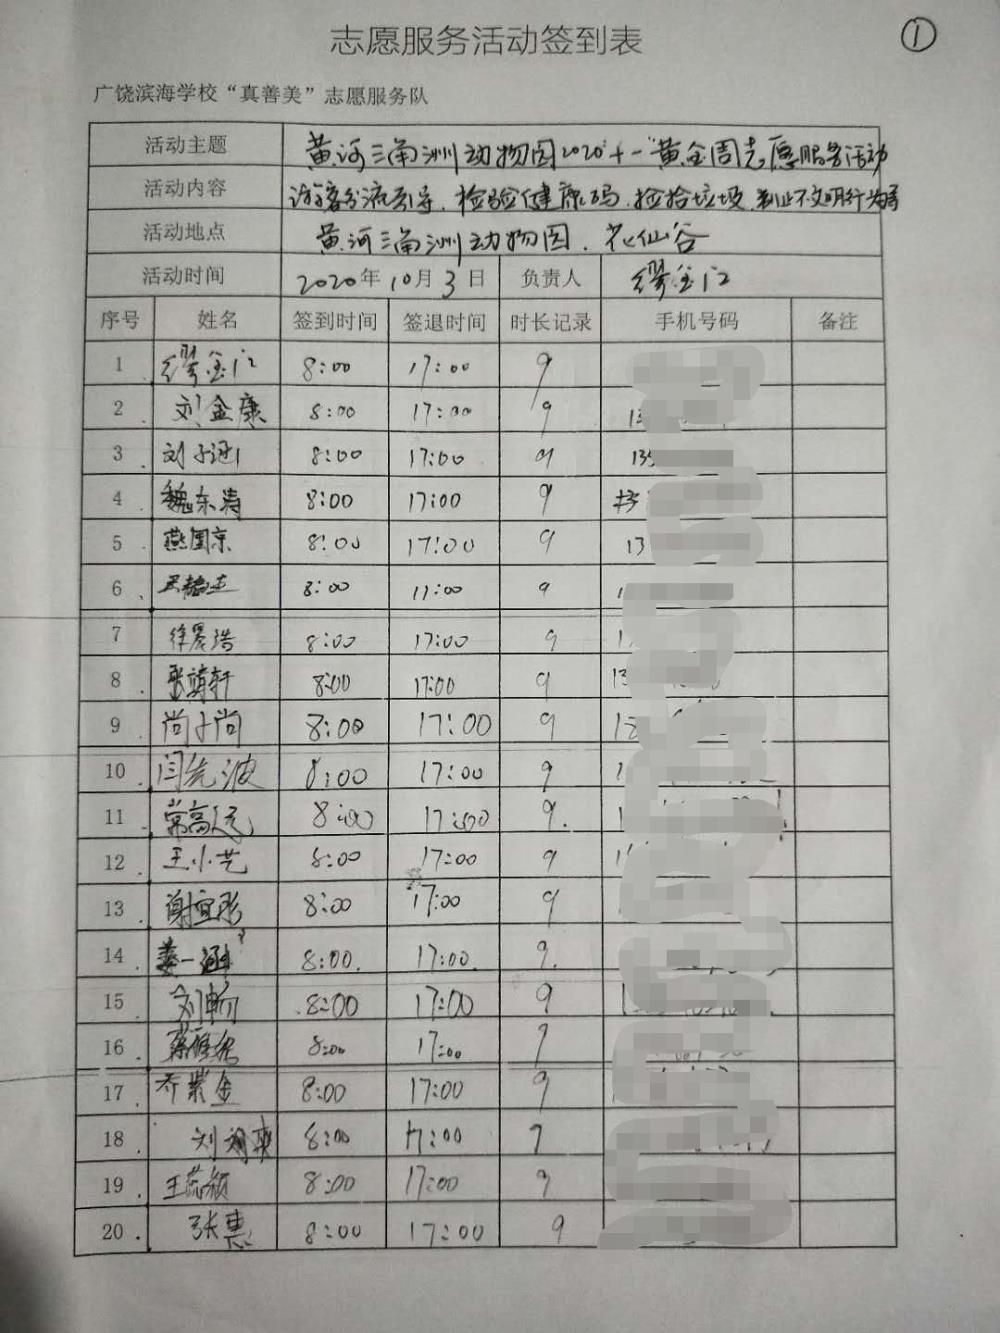 ①
志愿服务活动签到表
广饶滨海学校“真善美”志愿服务队
活动主题 黄河三角洲动物园2020十一黄金周志愿服务活动
活动内容 游客分流引导、检验健康码、捡拾垃圾、制止不文明行为等
活动地点 黄河三角洲动物园、花仙谷
活动时间 2020年10月3日 负责人 缪金江
序号 姓名 签到时间 签退时间 时长记录 手机号码 备注
1 缪金江 8:00 17:00 9
2 刘金康 8:00 17:00 9 13
3 刘子涵 8:00 17:00 9 135
4 魏东涛 8:00 17:00 9
5 燕国京 8:00 17:00 9 13
6 8:00 17:00 9
7 徐晨浩 8:00 17:00 9
8 张靖轩 8:00 17:00 9 13
9 尚子尚 8:00 17:00 9 18
10 闫先波 8:00 17:00 9
11 常高远 8:00 17:00 9.
12 王小艺 8:00 17:00 9
13 谢宜彤 8:00 17:00 9
14 姜一涵 8:00. 17:00. 9.
15 刘畅 8:00 17:00 9
16 8:00 17:00 9
17 乔紫金 8:00 17:00 9
18 刘 8:00 17:00 9
19 王蕊颖 8:00 17:00 9
20 张惠 8:00 17:00 9